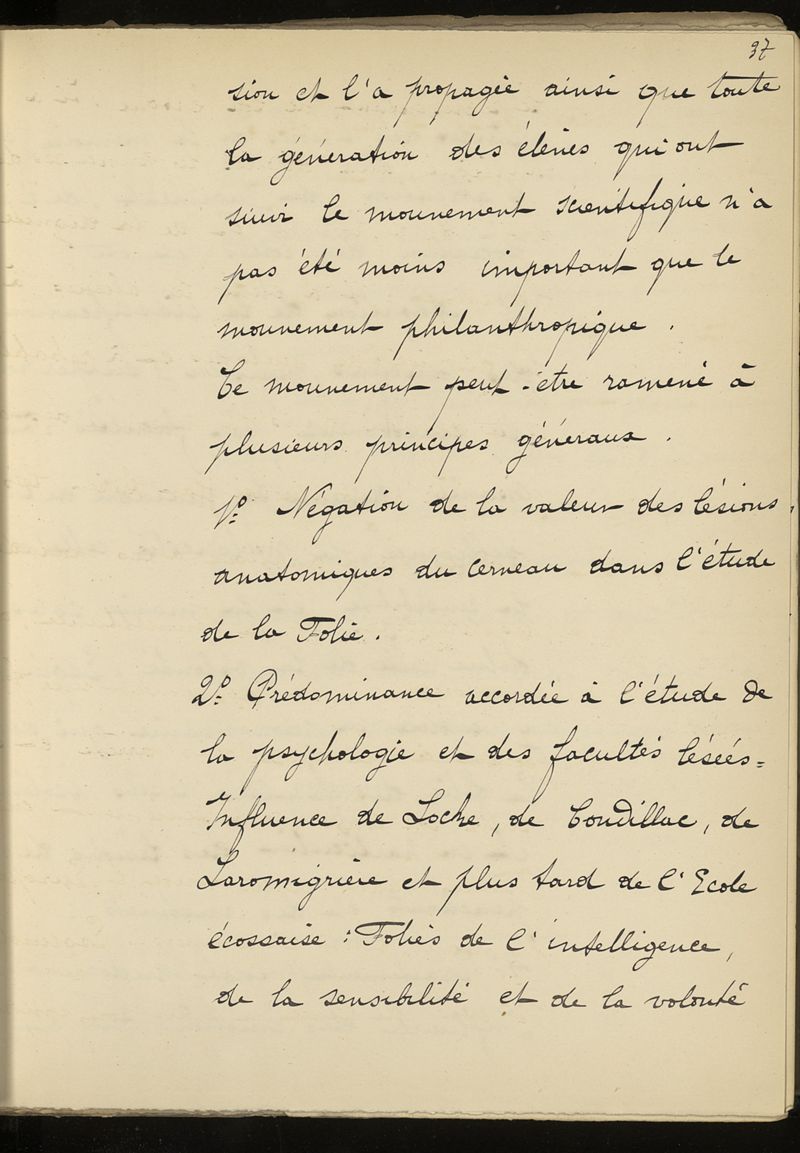 37
sion et l'a propagée ainsi que toute
la génération des élèves qui ont
suivi le mouvement scientifique n'a
pas été moins important que le
mouvement philanthropique.
Ce mouvement peut-être ramené à
plusieurs principes généraux.
1º Négation de la valeur des lésions
anatomiques du cerveau dans l'étude
de la Folie.
2º Prédominance accordée à l'étude de
la psychologie et des facultés lésées =
Influence de Locke, de Condillac, de
Laromiguière et plus tard de l'Ecole
écossaise : Folies de l'intelligence,
de la sensibilité et de la volonté